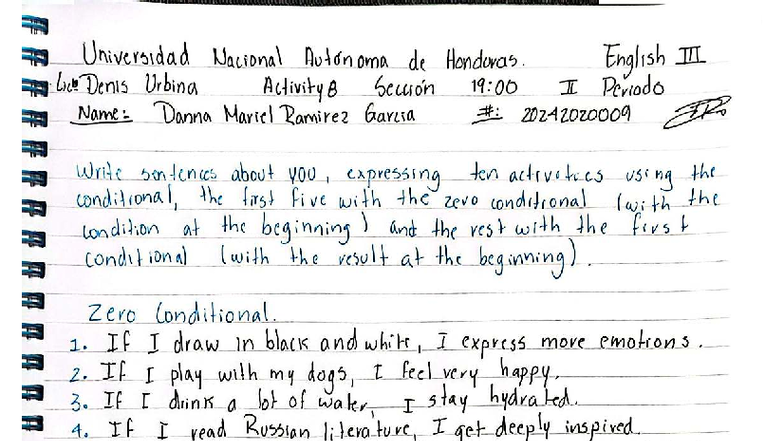 Universidad Nacional Autónoma de Honduras. English III
Lic. Denis Urbina Activity 8 Sección 19:00 II Periodo
Name: Danna Mariel Ramirez Garcia #: 20242020009
Write sentences about you, expressing ten activities using the
conditional, the first five with the zero conditional (with the
condition at the beginning) and the rest with the first
conditional (with the result at the beginning).
Zero Conditional.
1. If I draw in black and white, I express more emotions.
2. If I play with my dogs, I feel very happy.
3. If I drink a lot of water, I stay hydrated.
4. If I read Russian literature, I get deeply inspired.